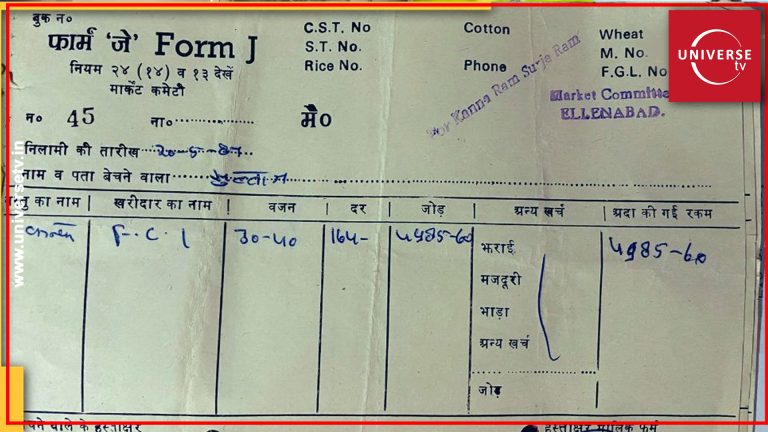 बुक न०
फार्म 'जे' Form J
नियम २४ (१४) व १३ देखें
मार्केट कमेटी
C.S.T. No
S.T. No.
Rice No.
Cotton
Phone
Wheat
M. No.
F.G.L. No
For Kanna Ram Surja Ram
Market Committe
ELLENABAD.
UNIVERSE
tv
न० 45 ना० मै०
निलामी की तारीख 20-5-87
नाम व पता बेचने वाला
का नाम खरीदार का नाम वजन दर जोड़ अन्य खर्च अदा की गई रकम
F.C.I 30-40 164- 4985-60 4985-60
भराई
मजदूरी
भाड़ा
अन्य खर्च
जोड़
वाले के हस्ताक्षर
हस्ताक्षर मालिक फर्म
www.universetv.in